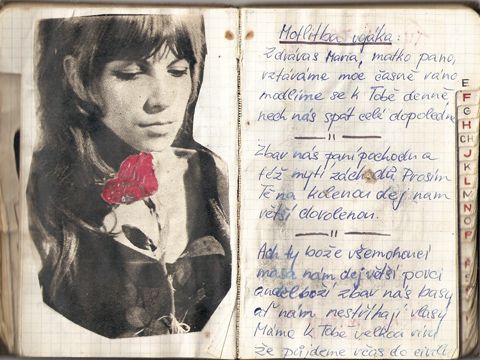 Motlitba vojáka:
Zdrávas Maria, matko pano,
vstáváme moc časně ráno
modlíme se k Tobě denně,
nech nás spát celé dopoledne
Zbav nás paní pochodu a
též mytí záchodů Prosím
Tě na kolenou dej nam
větší dovolenou.
Ach ty bože všemohoucí
masa nám dej větší porci
anděl boží zbav nás basy
ať nám nestříhají vlasy
Máme k Tobě velkou víru
že půjdeme včas do civilu,
E
F
G
H
CH
J
K
L
M
N
O
P
R
S